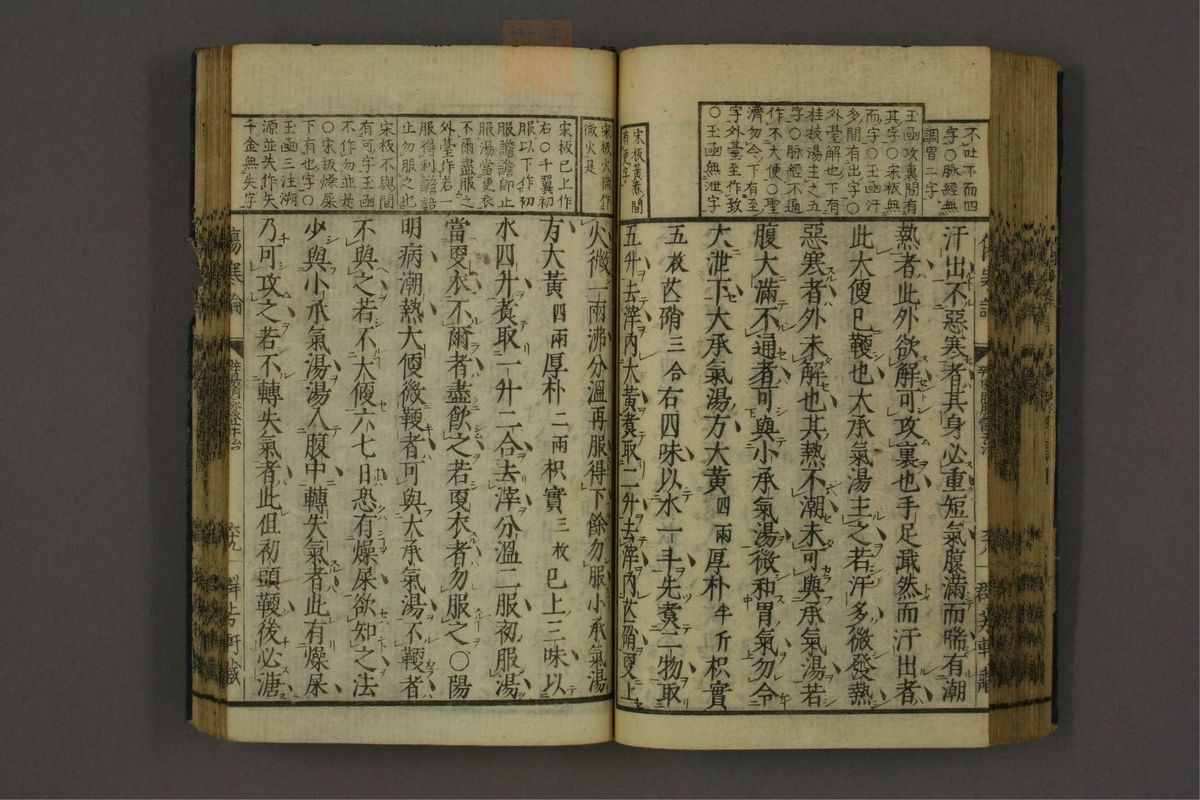 不吐下而四
字○脉經無
調胃二字
玉函攻裏間有
其字○宋板無
而字○玉函汗
多間有出字○
外臺解也下有
桂枝湯主之五
字○脉經不通
作不大便○聖
濟勿令下有至
字外臺至作致
○玉函無泄字
汗出不惡寒者其身必重短氣腹滿而喘有潮
熱者此外欲解可攻裏也手足濈然而汗出者
此大便已鞕也大承氣湯主之若汗多微發熱
惡寒者外未解也其熱不潮未可與承氣湯若
腹大滿不通者可與小承氣湯微和胃氣勿令
大泄下大承氣湯方大黃四兩厚朴半斤枳實
五枚芒硝三合右四味以水一斗先煑二物取
宋板黃煑間
有更字
五升去滓內大黃煑取二升去滓內芒硝更上
宋板火微作
微火是
宋板已上作
右○千翼初
服以下作初
服譫語即止
服湯當更衣
不爾盡服之
外臺作若一
服得利譫語
止勿服之也
宋板不與間
有可字玉函
不作勿並是
○宋板燥屎
下有也字○
玉函三注溯
源並失作矢
千金無失字
火微一兩沸分溫再服得下餘勿服小承氣湯
方大黃四兩厚朴二兩枳實三枚已上三味以
水四升煑取一升二合去滓分溫二服初服湯
當更衣不爾者盡飲之若更衣者勿服之○陽
明病潮熱大便微鞕者可與大承氣湯不鞕者
不與之若不大便六七日恐有燥屎欲知之法
少與小承氣湯湯入腹中轉失氣者此有燥屎
乃可攻之若不轉失氣者此但初頭鞕後必溏
傷寒論